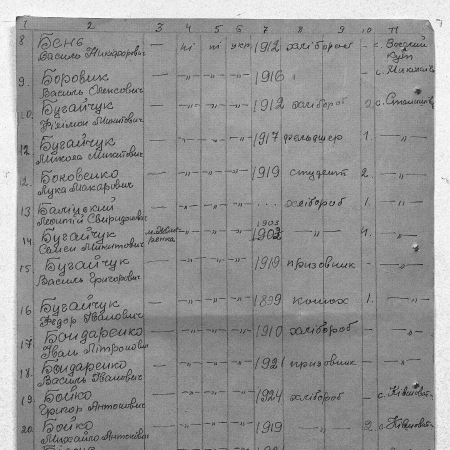 1 2 3 4 5 6 7 8 9 10 11
8 Бень — ні ні укр. 1912 хлібороб - с. Високий
Василь Никифорович
9. Боровик — " " " 1916 с. Миколаїв
Василь Олексович
10. Бугайчук — " " " 1912 хлібороб 2
Пилимон Микитович
12. Бугайчук — " " " 1917 фельдшер 1. — " —
Микола Микитович
12. Боковенко — " " " 1919 студент 2. — " —
Лука Макарович
13 — " " " хлібороб 1. — " —
Леонтій Свиридович
1903
14 Бугайчук — " " " 1902 — " — 4. — " —
Семен Микитович
15. Бугайчук — " " " 1919 призовник - — " —
Василь Григорович
16 Бугайчук — " " " 1899 конюх 1. — " —
Федор Іванович
17. Бондаренко — " " " 1910 хлібороб - — " —
Іван
18. Бондаренко — " " " 1921 призовник - — " —
Василь Іванович
19. Бойко — " " " 1924 хлібороб
Григор Антонович
20. Бойко — " " " 1919 — " — 2.
Михайло Антонович